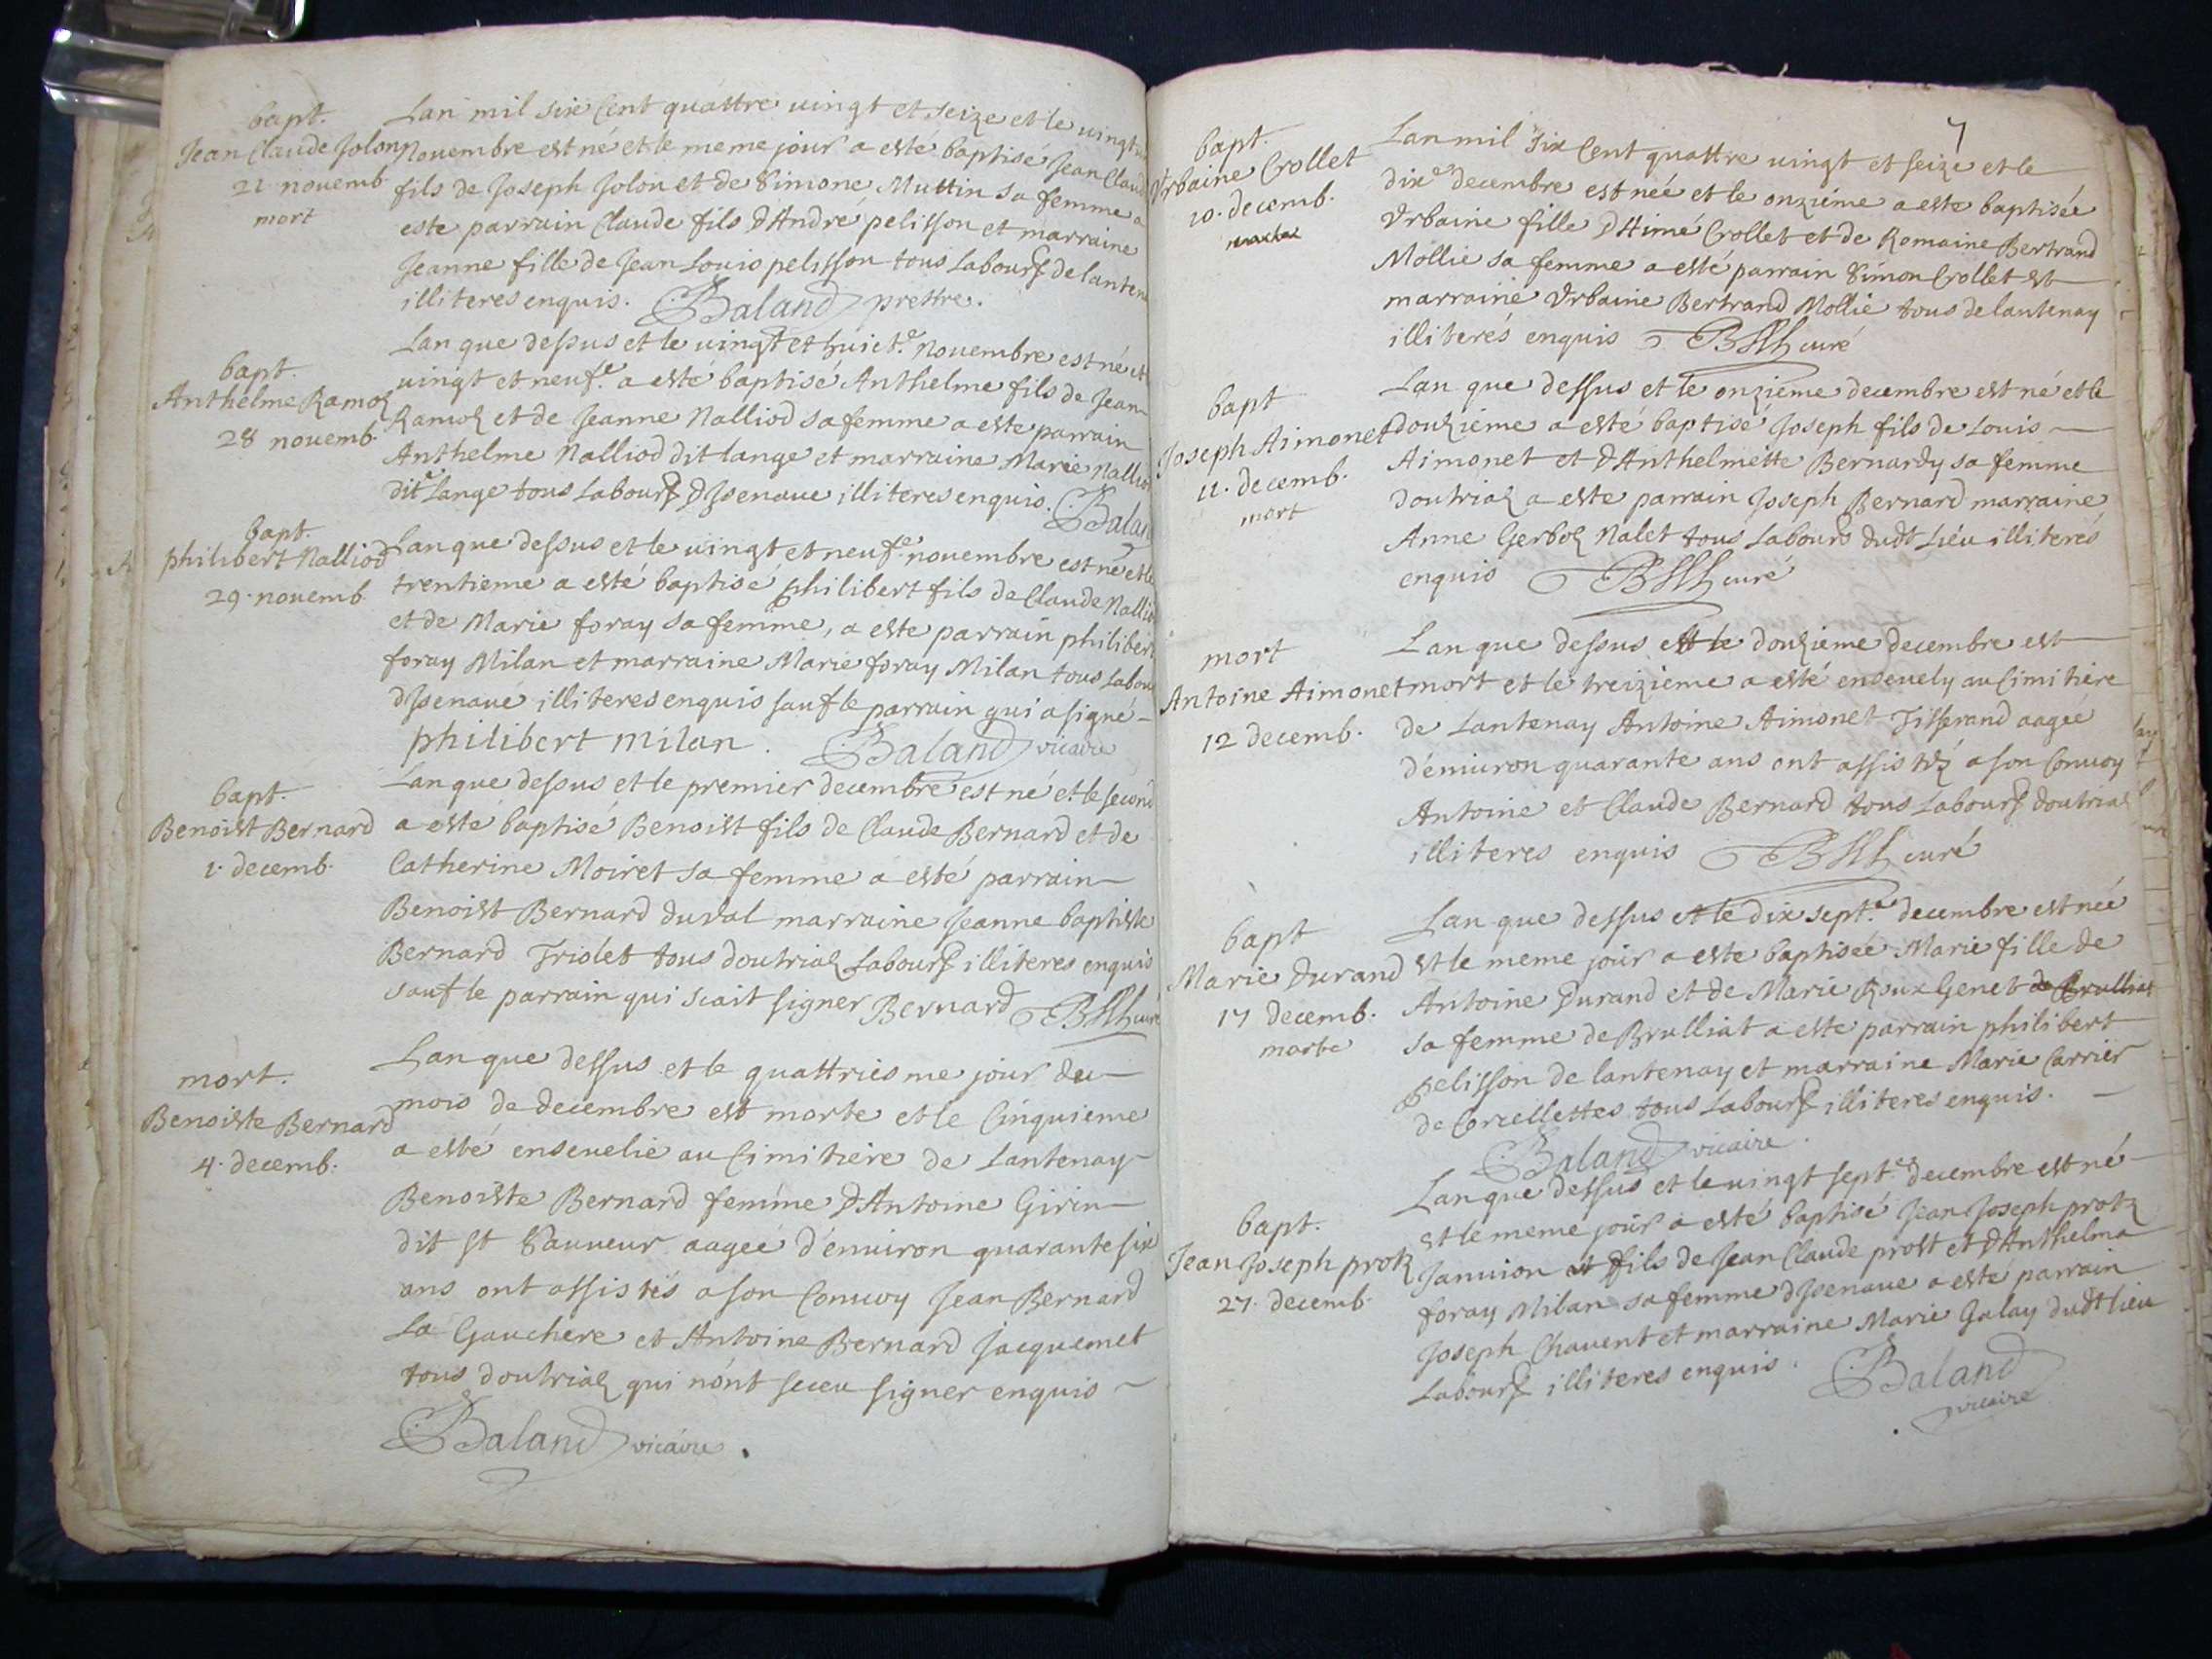 bapt.
Jean Claude Jolon
21 novemb.
mort
Lan mil six Cent quattre uingt et seize et le uingt
Nouembre est né et le meme jour a esté baptisé Jean Claude
fils de Joseph Jolon et de Simone Muttin sa femme a
este parrain Claude fils D'André pelisson et marraine
Jeanne fille de Jean Louis pelisson tous Labours de lanten
illiteres enquis. Baland prettre.
bapt.
Anthelme Ramoz
28 nouemb.
Lan que dessus et le uingt et huict.e Nouembre est né et
uingt et neuf.e a esté baptisé Anthelme fils de Jean
Ramoz et de Jeanne Nalliod sa femme a esté parrain
Anthelme Nalliod dit lange et marraine Marie Nalliod
dite Lange tous Labours D'Jsenaue illiteres enquis. Baland
bapt.
philibert Nalliod
29. nouemb.
Lan que dessus et le uingt et neuf.e nouembre est né et le
trentieme a esté baptisé philibert fils de Claude Nalliod
et de Marie foray sa femme, a este parrain philibert
foray Milan et marraine Marie foray Milan tous Labou
d'Jsenaue illiteres enquis sauf le parrain qui a signé
philibert milan. Baland vicaire
bapt.
Benoist Bernard
1. decemb.
Lan que dessus et le premier decembre est né et le second
a esté baptisé Benoist fils de Claude Bernard et de
Catherine Moiret sa femme a esté parrain
Benoist Bernard duval marraine Jeanne baptiste
Bernard Triolet tous doutriaz Labours illiteres enquis
sauf le parrain qui scait signer Bernard curé
mort.
Benoiste Bernard
4. decemb.
Lan que dessus et le quattriesme jour du
mois de decembre est morte et le Cinquieme
a esté enseuelie au Cimitiere de Lantenay
Benoiste Bernard femme D'Antoine Girin
dit St Sauueur aageé d'enuiron quarante six
ans ont assistés a son Conuoy Jean Bernard
La Gauchere et Antoine Bernard Jacquemet
tous doutriaz qui n'ont sceu signer enquis
Baland vicaire.
7
bapt.
Vrbaine Crollet
10. decemb.
Lan mil six Cent quattre uingt et seize et le
dixe decembre est née et le onzieme a este baptisée
Vrbaine fille D'Aimé Crollet et de Romaine Bertrand
Mollie sa femme a esté parrain Simon Crollet et
marraine Vrbaine Bertrand Mollie tous de lantenay
illiterés enquis curé
bapt
Joseph Aimonet
11. decemb.
mort
Lan que dessus et le onzieme decembre est né et le
douzieme a esté baptisé Joseph fils de Louis
Aimonet et D'Anthelmette Bernardy sa femme
doutriaz a este parrain Joseph Bernard marraine
Anne Gerboz Nalet tous Labours dudt Lieu illiterés
enquis curé
mort
Antoine Aimonet
12 decemb.
Lan que dessus et le douzieme decembre est
mort et le treizieme a esté enseuely au Cimitiere
de Lantenay Antoine Aimonet Tisserand aageé
d'enuiron quarante ans ont assistéz a son Conuoy
Antoine et Claude Bernard tous Labours doutriaz
illiteres enquis curé
bapt
Marie Durand
17 decemb.
morte
Lan que dessus et le dix sept.e decembre est née
et le meme jour a este baptiseé Marie fille de
Antoine Durand et de Marie Roux Genet de Brulliat
sa femme de Brulliat a este parrain philibert
pelisson de lantenay et marraine Marie Carrier
de Corcellettes tous Labours illiteres enquis.
Baland vicaire.
bapt.
Jean Joseph protz
27. decemb.
Lan que dessus et le uingt sept.e decembre est né
et le meme jour a esté baptisé Jean Joseph protz
Januion fils de Jean Claude prost et D'Anthelma
foray Milan sa femme d'Jsenaue a esté parrain
Joseph Chauent et marraine Marie Galay dudt lieu
Labours illiteres enquis. Baland
vicaire